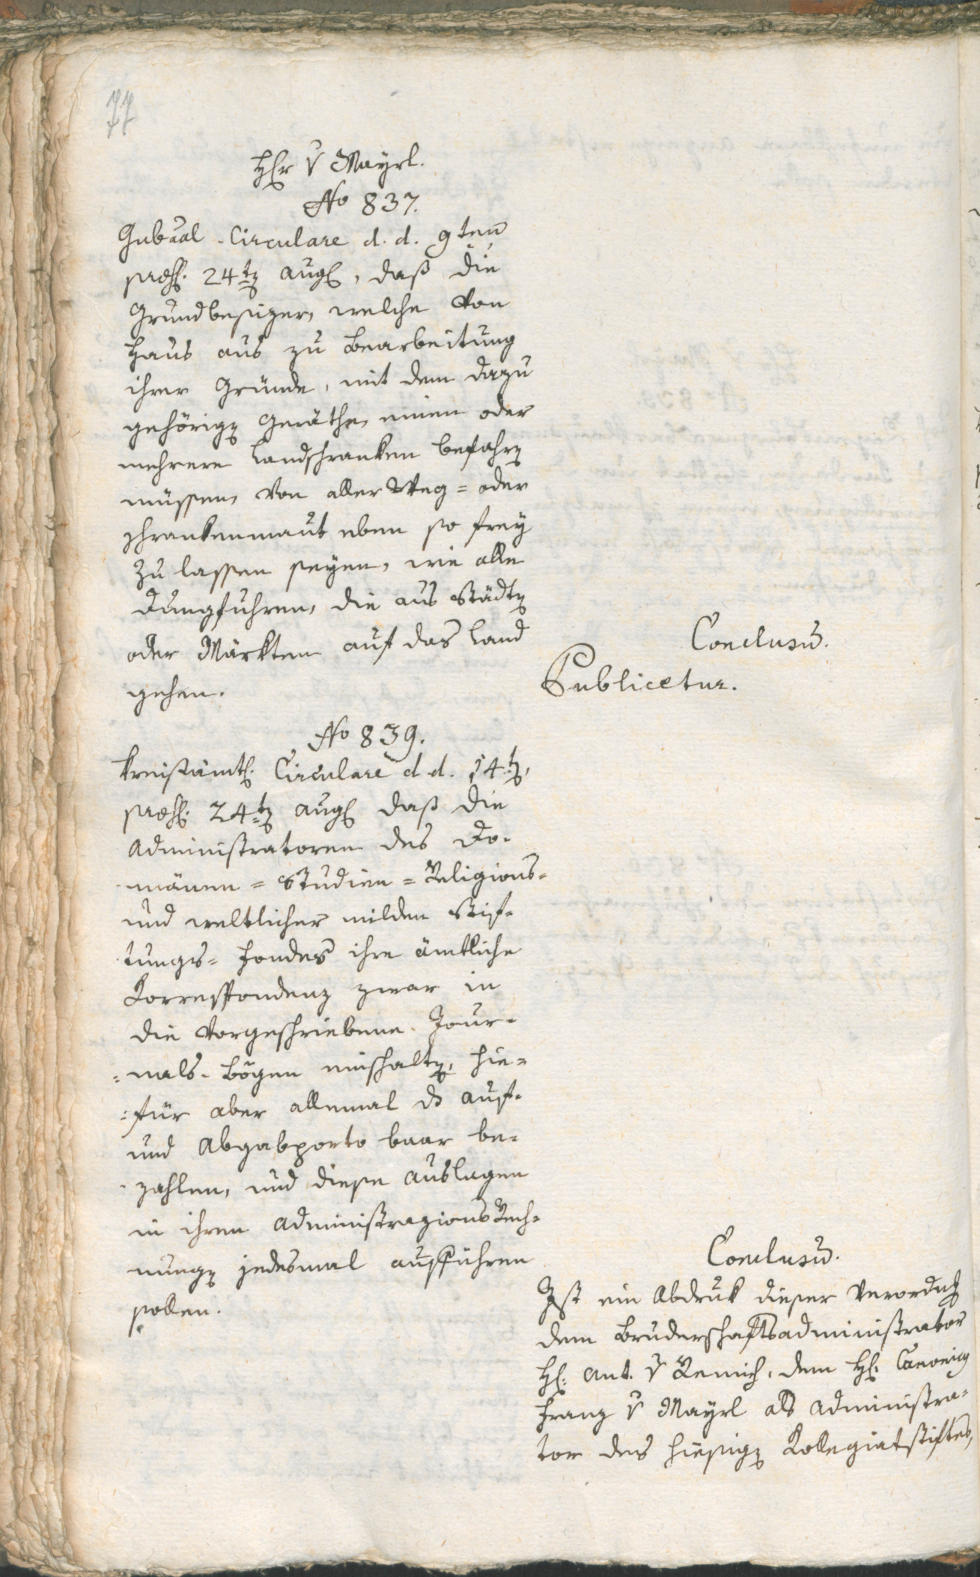 77
Hr v Mayrl.
No 837.
Gubaal-Circulare d. d. 9ten
praes. 24tn Aug, daß die
Grundbesizer, welche von
Haus aus zu Bearbeitung
ihrer Gründe, mit dem dazu
gehörign Geräthe, einen oder
mehrere Landschranken befahrn
müssen, von aller Weg- oder
Schrankenmaut eben so frey
zu lassen seyen, wie alle
Dungfuhren, die aus Städtn
oder Märkten auf das Land
gehen.
Conclusū.
Publicetur.
No 839.
Kreisämtl. Circulare d. d. 14tn,
praes. 24tn Aug daß die
Administratoren des Do-
mänen- Studien- Religions-
und weltlicher milden Stif-
tungs- Fondes ihre ämtliche
Korrespondenz zwar in
die vorgeschriebene Jour-
nals-Bögen einschaltn, hie-
für aber allemal ds Auf-
und Abgabporto baar be-
zahlen, und diese Auslagen
in ihren AdministrazionsRech-
nungn jedesmal aufführen
sollen.
Conclusū.
Ist ein Abdruk dieser Verordng
dem Bruderschaftsadministrator
H. Ant. v Remich, dem H. Canonicg
Franz v Mayrl als Administra-
tor des hiesign Kollegiatstiftes,